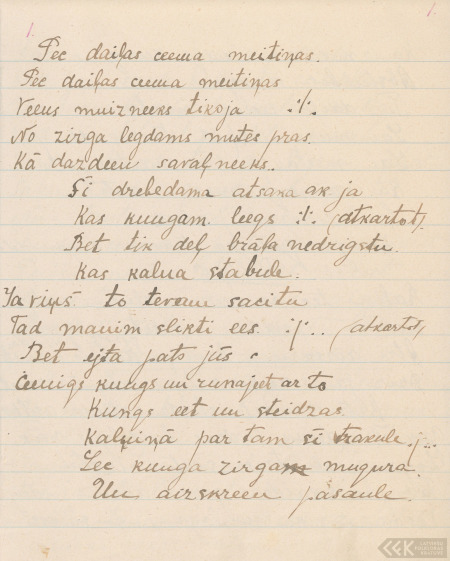 1. 1.
Pēc daiļas ceema meitiņas.
Pēc daiļas ceema meitiņas
Veens muizneeks tikoja :/:.
No zirga legdams mutes pras.
Kā dazdeen savaļneeks.
Šī drebedama atsaka ak ja
Kas kungam leegs :/: (atkartot).
Bet tik deļ brāļa nedrīgstu
Kas kalna stabule.
Ja viņš to tevem sacitu
Tad manim slikti ees. :/: . . (atkartot)
Bet ejta pats jūs
ceenigs kungs un runajeet ar to
Kungs eet un steidzas.
kalniņā par tam šī trakule :/: . .
Lec kunga zirgam mugura.
Un aizskreen pasaule.
LFK